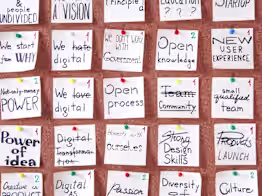 PEOPLE
UNDIVIDED
A VISION
Education
We start
from WHY
1
We hate
digital
2
We don't work
with
Government
Open
knowledge
2
NEW
USER
EXPERIENCE
1
Not only money
POWER
We love
digital
1
Open
process
2
Team
Community
1
small
qualified
Team
2
Power of
idea
Digital
Transformation
with
ourselves
Strong
Design
Skills
Products
LAUNCH
PRODUCT
Digital
Passion
Diversity
Culture